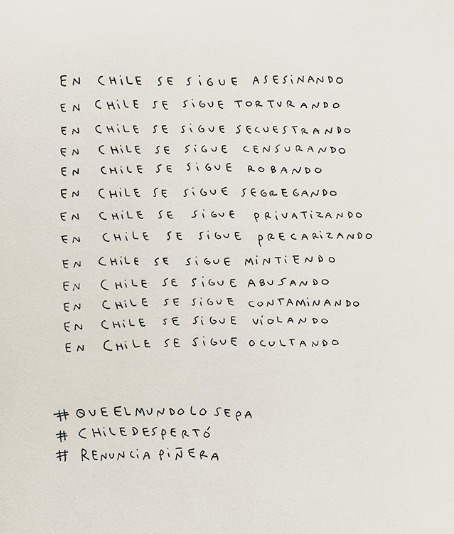 EN CHILE SE SIGUE ASESINANDO
EN CHILE SE SIGUE TORTURANDO
EN CHILE SE SIGUE SECUESTRANDO
EN CHILE SE SIGUE CENSURANDO
EN CHILE SE SIGUE ROBANDO
EN CHILE SE SIGUE SEGREGANDO
EN CHILE SE SIGUE PRIVATIZANDO
EN CHILE SE SIGUE PRECARIZANDO
EN CHILE SE SIGUE MINTIENDO
EN CHILE SE SIGUE ABUSANDO
EN CHILE SE SIGUE CONTAMINANDO
EN CHILE SE SIGUE VIOLANDO
EN CHILE SE SIGUE OCULTANDO
# QUEELMUNDOLOSEPA
# CHILEDESPERTÓ
# RENUNCIAPIÑERA